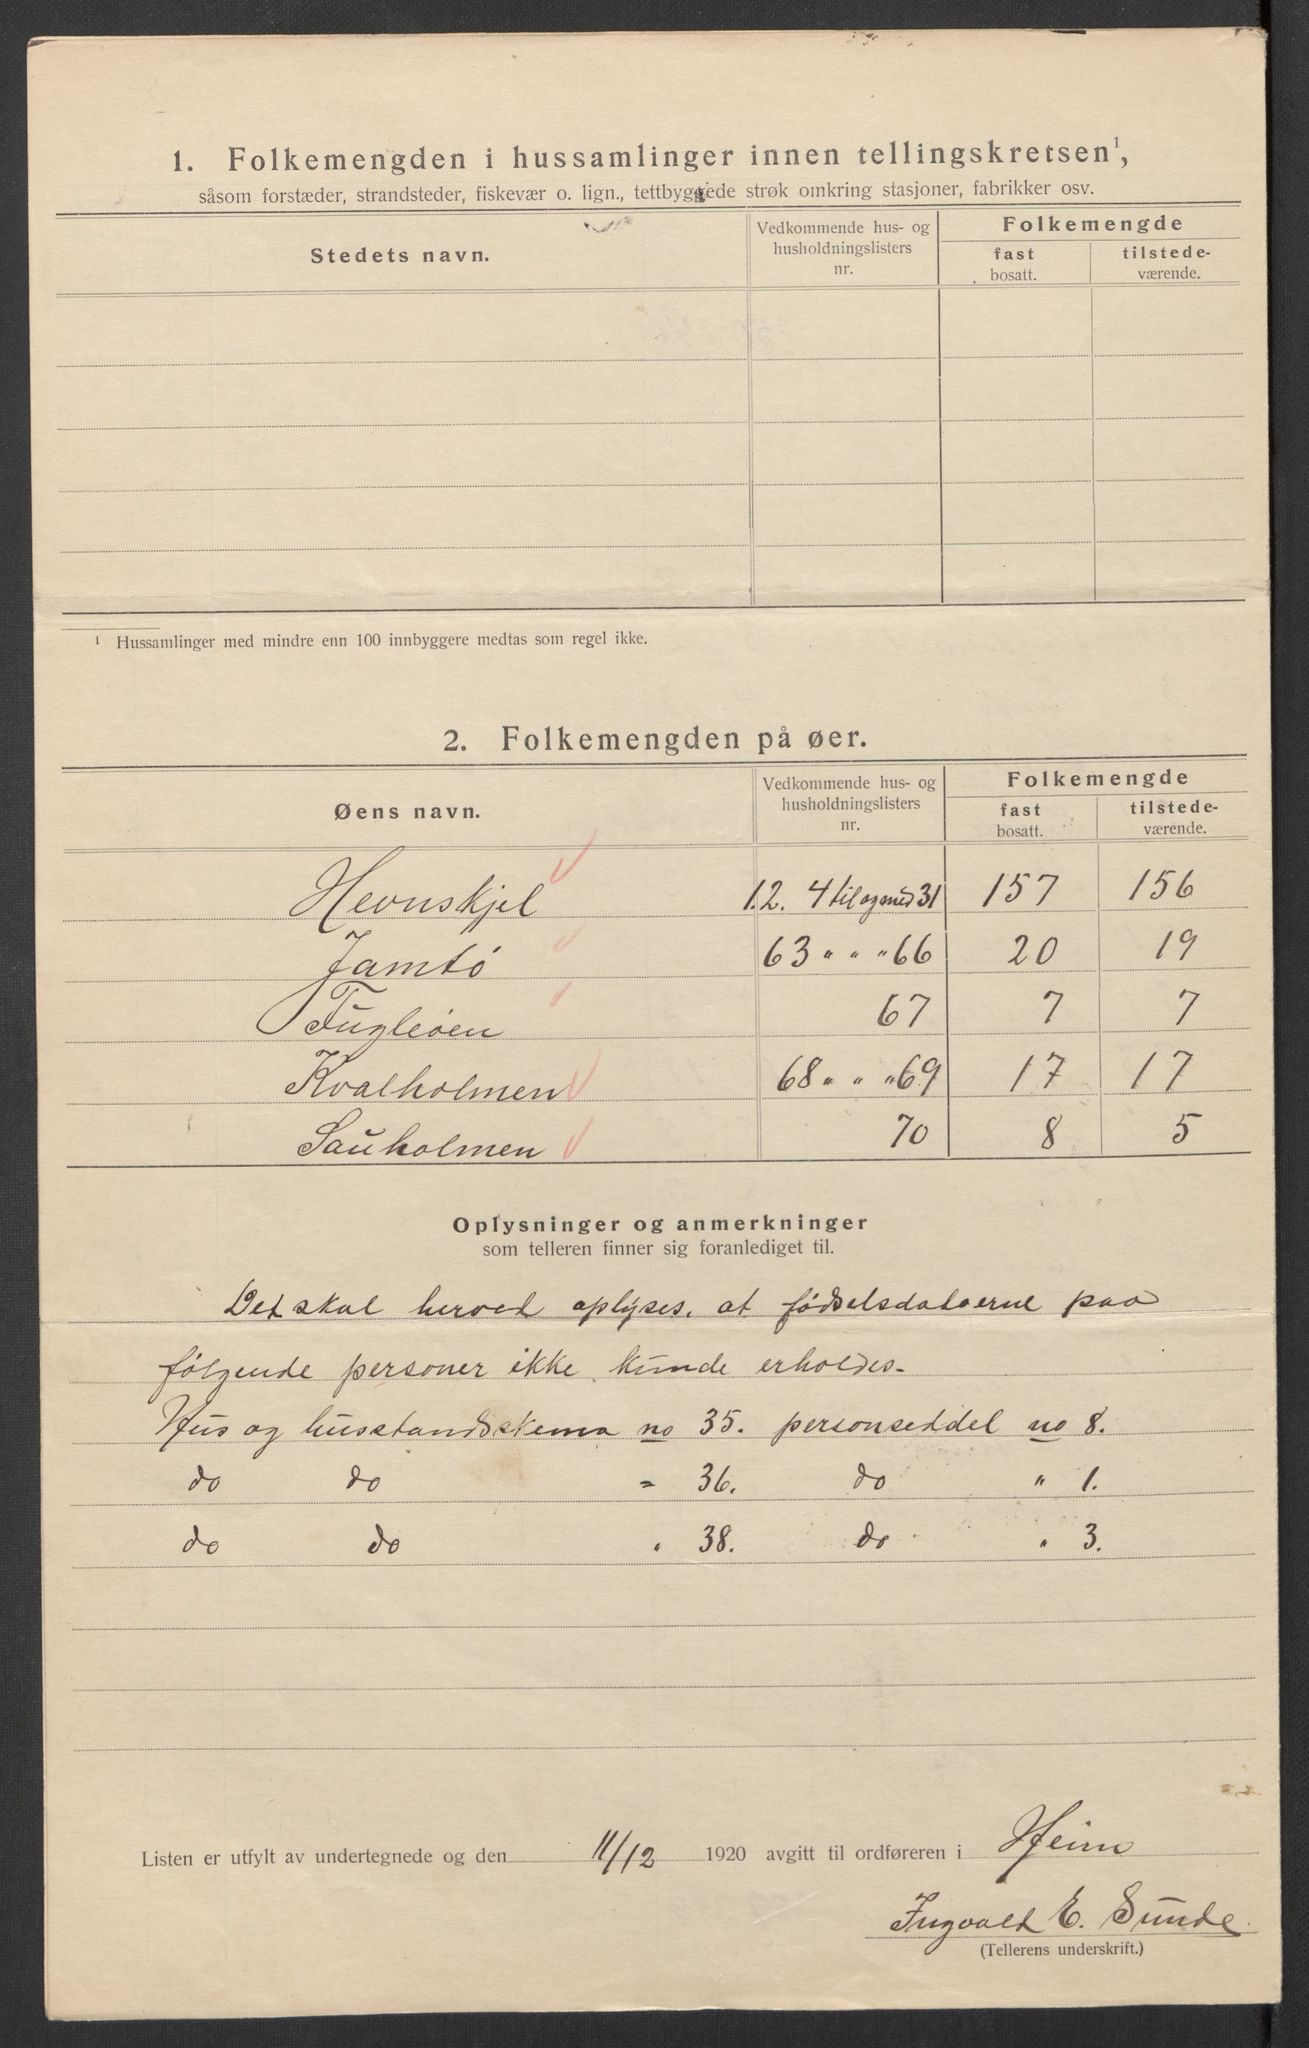 1. Folkemengden i hussamlinger innen tellingskretsen¹,
såsom forstæder, strandsteder, fiskevær o. lign., tettbyggede strøk omkring stasjoner, fabrikker osv.
Stedets navn.
Vedkommende hus- og
husholdningslisters
nr.
Folkemengde
fast
bosatt.
tilstede-
værende.
¹ Hussamlinger med mindre enn 100 innbyggere medtas som regel ikke.
2. Folkemengden på øer.
Øens navn.
Vedkommende hus- og
husholdningslisters
nr.
Folkemengde
fast
bosatt.
tilstede-
værende.
Hevnskjel 1.2. 4 til og med 31 157 156
Jamtö 63 " " " 66 20 19
Fugleöen 67 7 7
Kvalholmen 68 " " " 69 17 17
Sauholmen 70 8 5
Oplysninger og anmerkninger
som telleren finner sig foranlediget til.
Det skal herved oplyses, at födselsdatoerne paa
fölgende personer ikke kunde erholdes.
Hus og husstandsskema no 35. personseddel no 8.
do do " 36. do " 1.
do do " 38. do " 3.
Listen er utfylt av undertegnede og den 11/12 1920 avgitt til ordføreren i Heim
Ingvald E. Sunde
(Tellerens underskrift.)